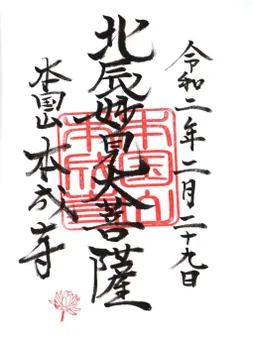 令和二年二月二十九日
北辰妙見大菩薩
本国山 本成寺